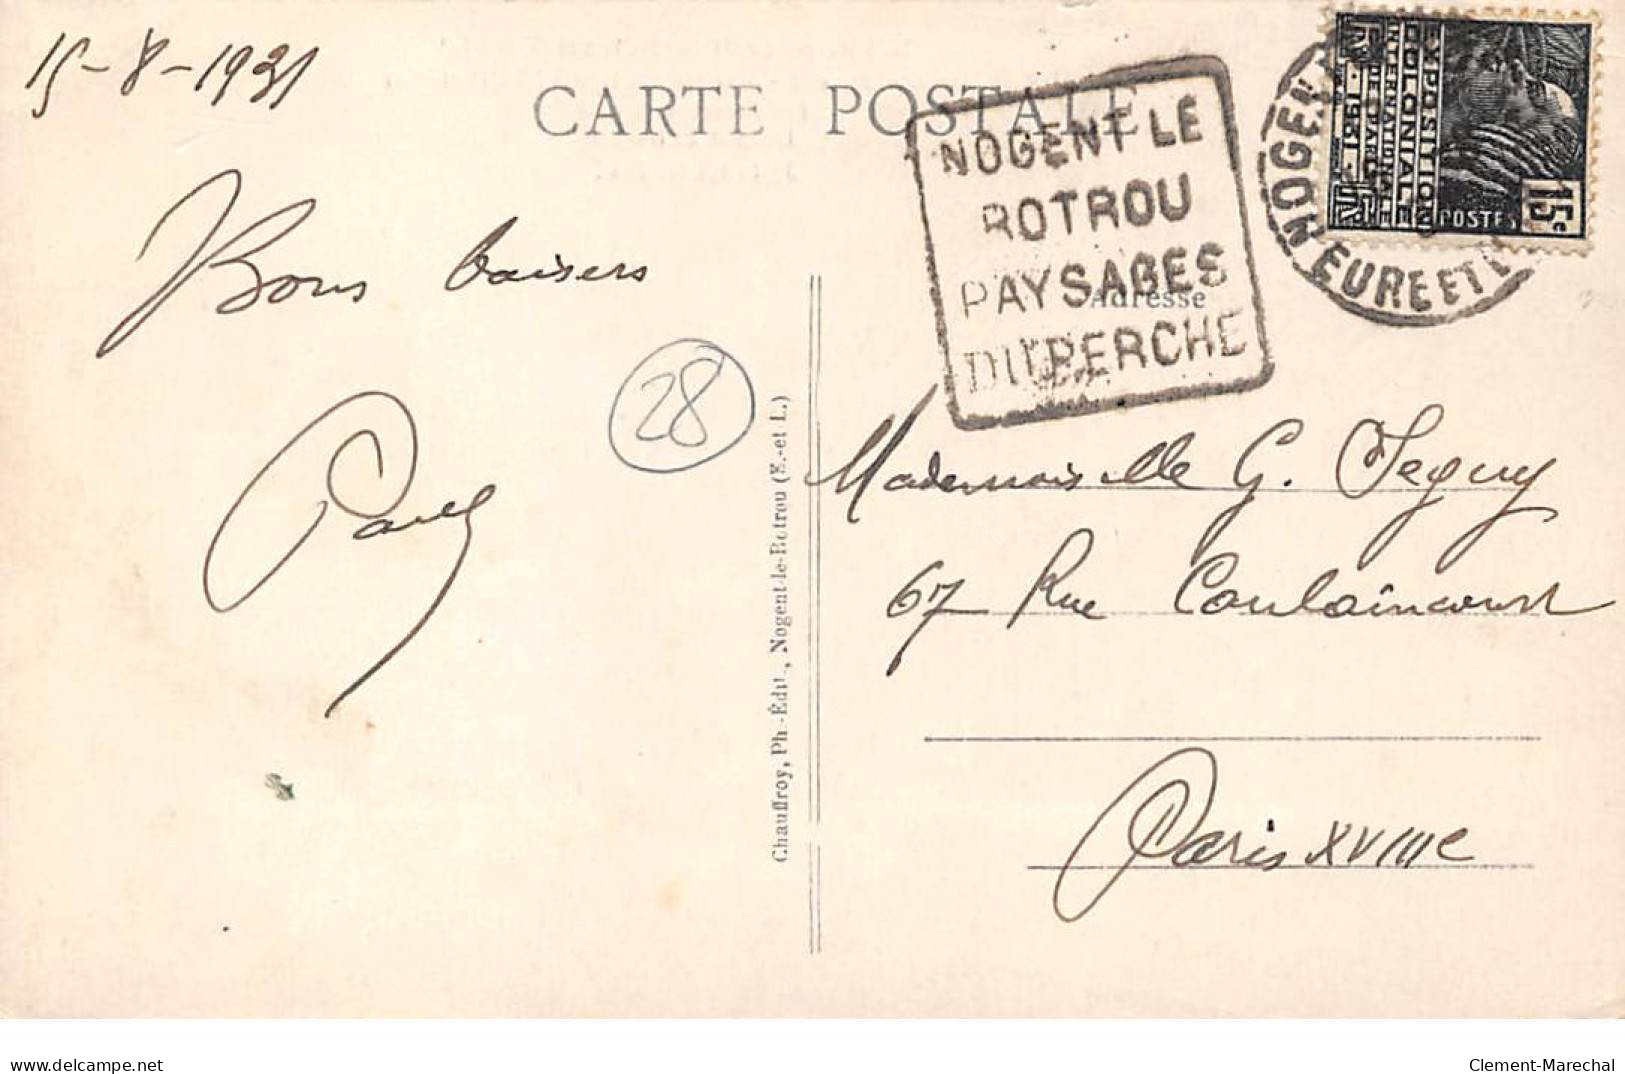 15-8-1931
CARTE POSTALE
NOGENT LE
ROTROU
PAYSAGES
DU PERCHE
Adresse
EXPOSITION
COLONIALE
INTERNATIONALE
DE PARIS
RF - 1931 - RF
POSTES
15c
NOGENT
EURE ET L
Bons baisers
28
Paul
Chauffroy, Ph.-Édit., Nogent-le-Rotrou (E.-et L.)
Mademoiselle G. Seguy
67 Rue Caulaincourt
Paris XVIIIe
www.delcampe.net
Clement-Marechal